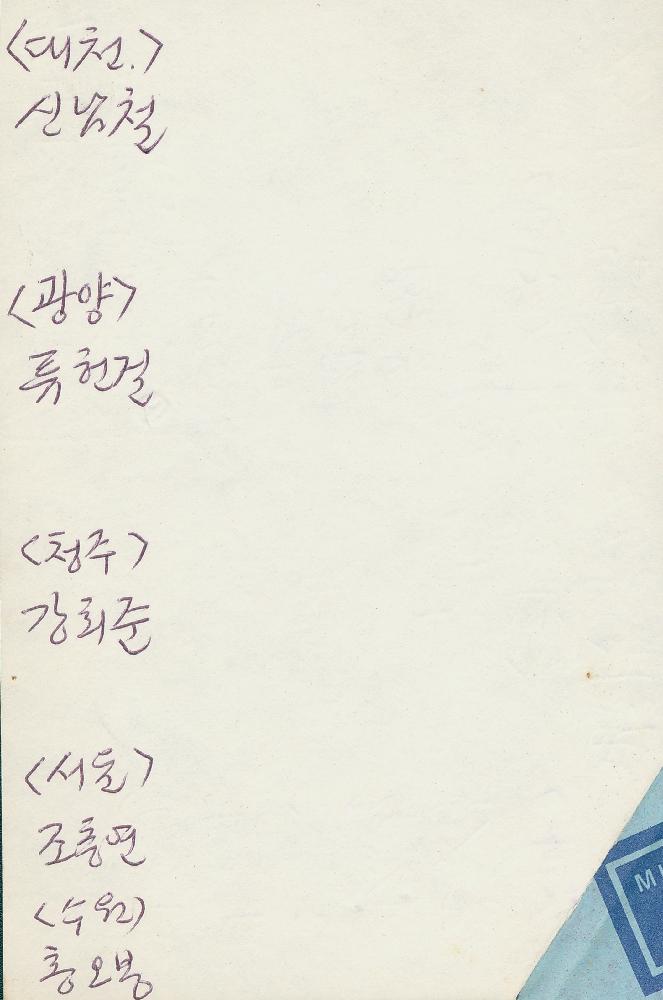 <대천.>
신남철
<광양>
류헌걸
<청주>
강희준
<서울>
조흥연
<수원>
홍오봉
M